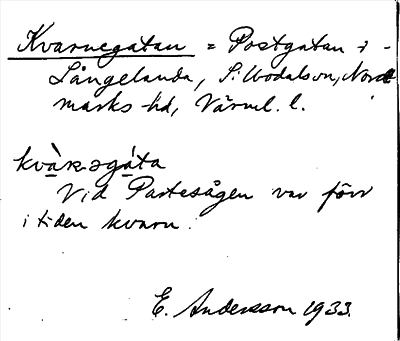 Kvarnegatan = Postgatan i
Långelanda, S. Nord-
marks hd, Värml. l.
kvà̱ʀnəgá̱ta
Vid Partesågen var förr
i tiden kvarn.
E. Andersson 1933.